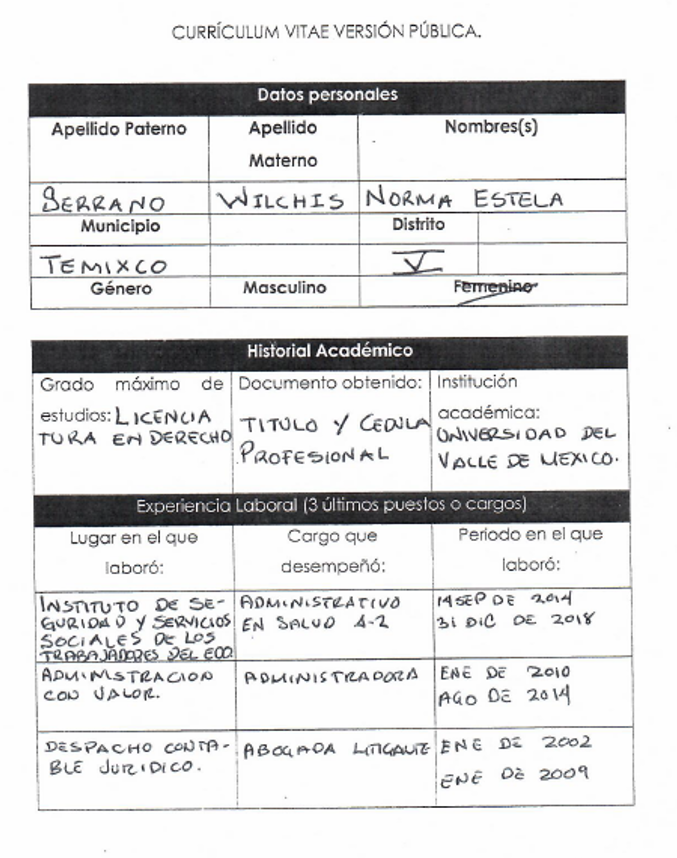 CURRÍCULUM VITAE VERSIÓN PÚBLICA.
Datos personales
Apellido Paterno
Apellido
Materno
Nombres(s)
SERRANO
WILCHIS
NORMA ESTELA
Municipio
Distrito
TEMIXCO
V
Género
Masculino
Femenino
Historial Académico
Grado máximo de
estudios: LICENCIA
TURA EN DERECHO
Documento obtenido:
TITULO Y CEDULA
PROFESIONAL
Institución
académica:
UNIVERSIDAD DEL
VALLE DE MEXICO.
Experiencia Laboral (3 últimos puestos o cargos)
Lugar en el que
laboró:
Cargo que
desempeñó:
Periodo en el que
laboró:
INSTITUTO DE SE-
GURIDAD Y SERVICIOS
SOCIALES DE LOS
TRABAJADORES DEL EDO
ADMINISTRATIVO
EN SALUD A-2
14 SEP DE 2014
31 DIC DE 2018
ADMINISTRACION
CON VALOR.
ADMINISTRADORA
ENE DE 2010
AGO DE 2014
DESPACHO CONTA-
BLE JURIDICO.
ABOGADA LITIGANTE
ENE DE 2002
ENE DE 2009